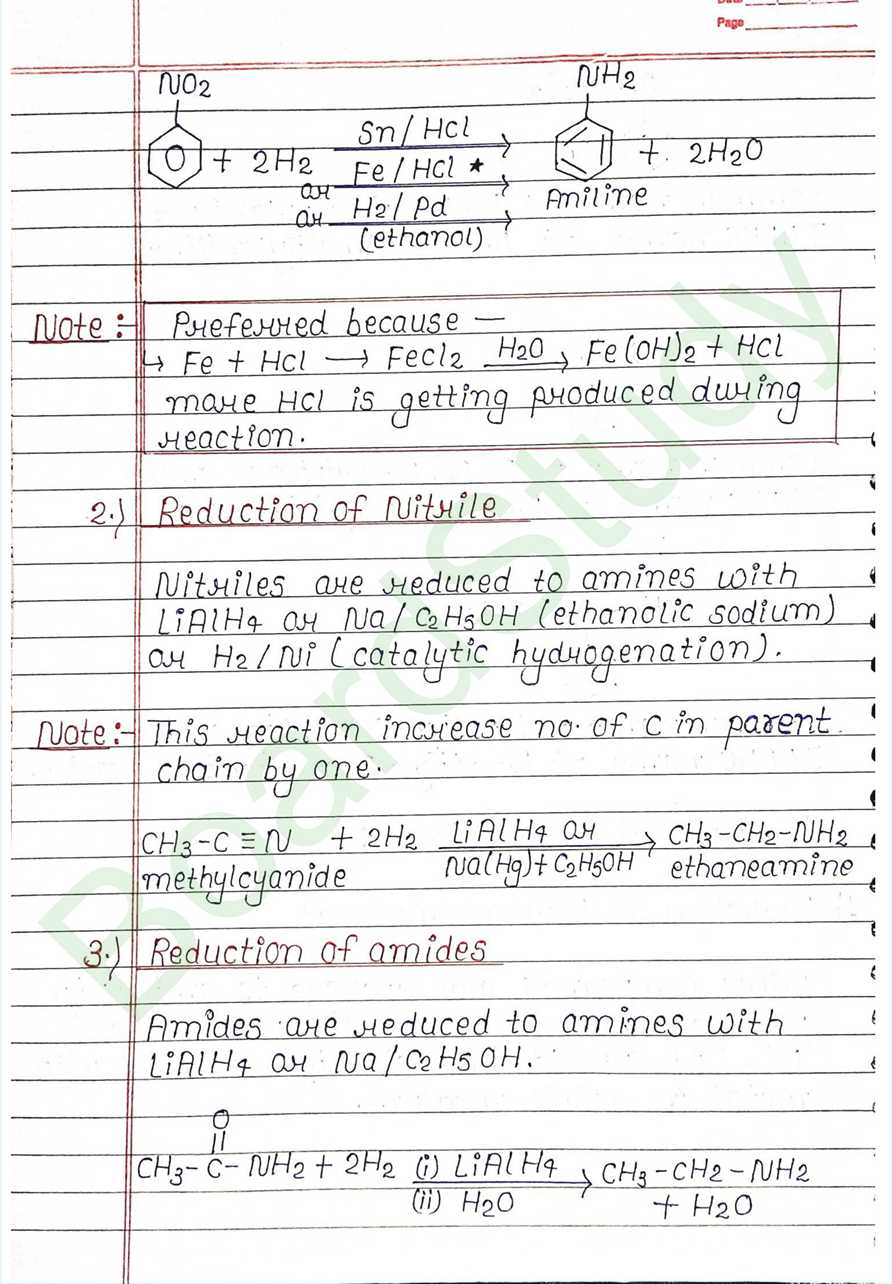 Date
Page
NO2
NH2
+ 2H2 Sn / HCl + 2H2O
or Fe / HCl ★
or H2 / Pd
(ethanol)
Aniline
Note :- Preferred because —
↳ Fe + HCl ⟶ FeCl2 H2O⟶ Fe(OH)2 + HCl
more HCl is getting produced during
reaction.
2.) Reduction of Nitrile
Nitriles are reduced to amines with
LiAlH4 or Na/C2H5OH (ethanolic sodium)
or H2/Ni (catalytic hydrogenation).
Note :- This reaction increase no. of C in parent
chain by one.
CH3-C≡N + 2H2 LiAlH4 or ⟶ CH3-CH2-NH2
methylcyanide Na(Hg)+C2H5OH ethaneamine
3.) Reduction of amides
Amides are reduced to amines with
LiAlH4 or Na/C2H5OH.
O
||
CH3-C-NH2 + 2H2 (i) LiAlH4 ⟶ CH3-CH2-NH2
(ii) H2O + H2O
BoardStudy